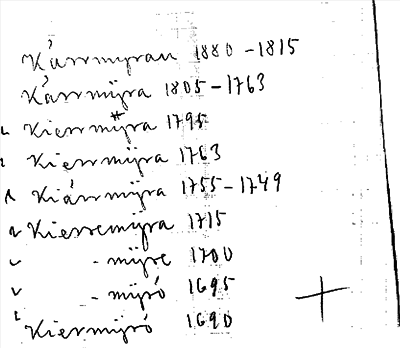 Kärrmyran 1880-1815
Kärrmÿra 1805-1763
Kierrmÿra 1795
Kierrmÿra 1763
Kiärrmÿra 1755-1749
Kierremÿra 1715
-mÿre 1700
-mÿró 1695
Kiermÿró 1690